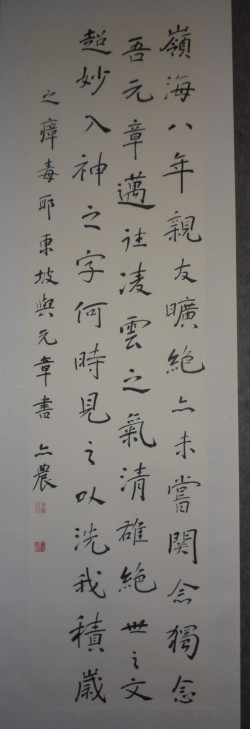 嶺海八年親友曠絕亦未嘗關念獨念
吾元章邁往凌雲之氣清雄絕世之文
超妙入神之字何時見之以洗我積歲
之瘴毒耶東坡與元章書 亦農